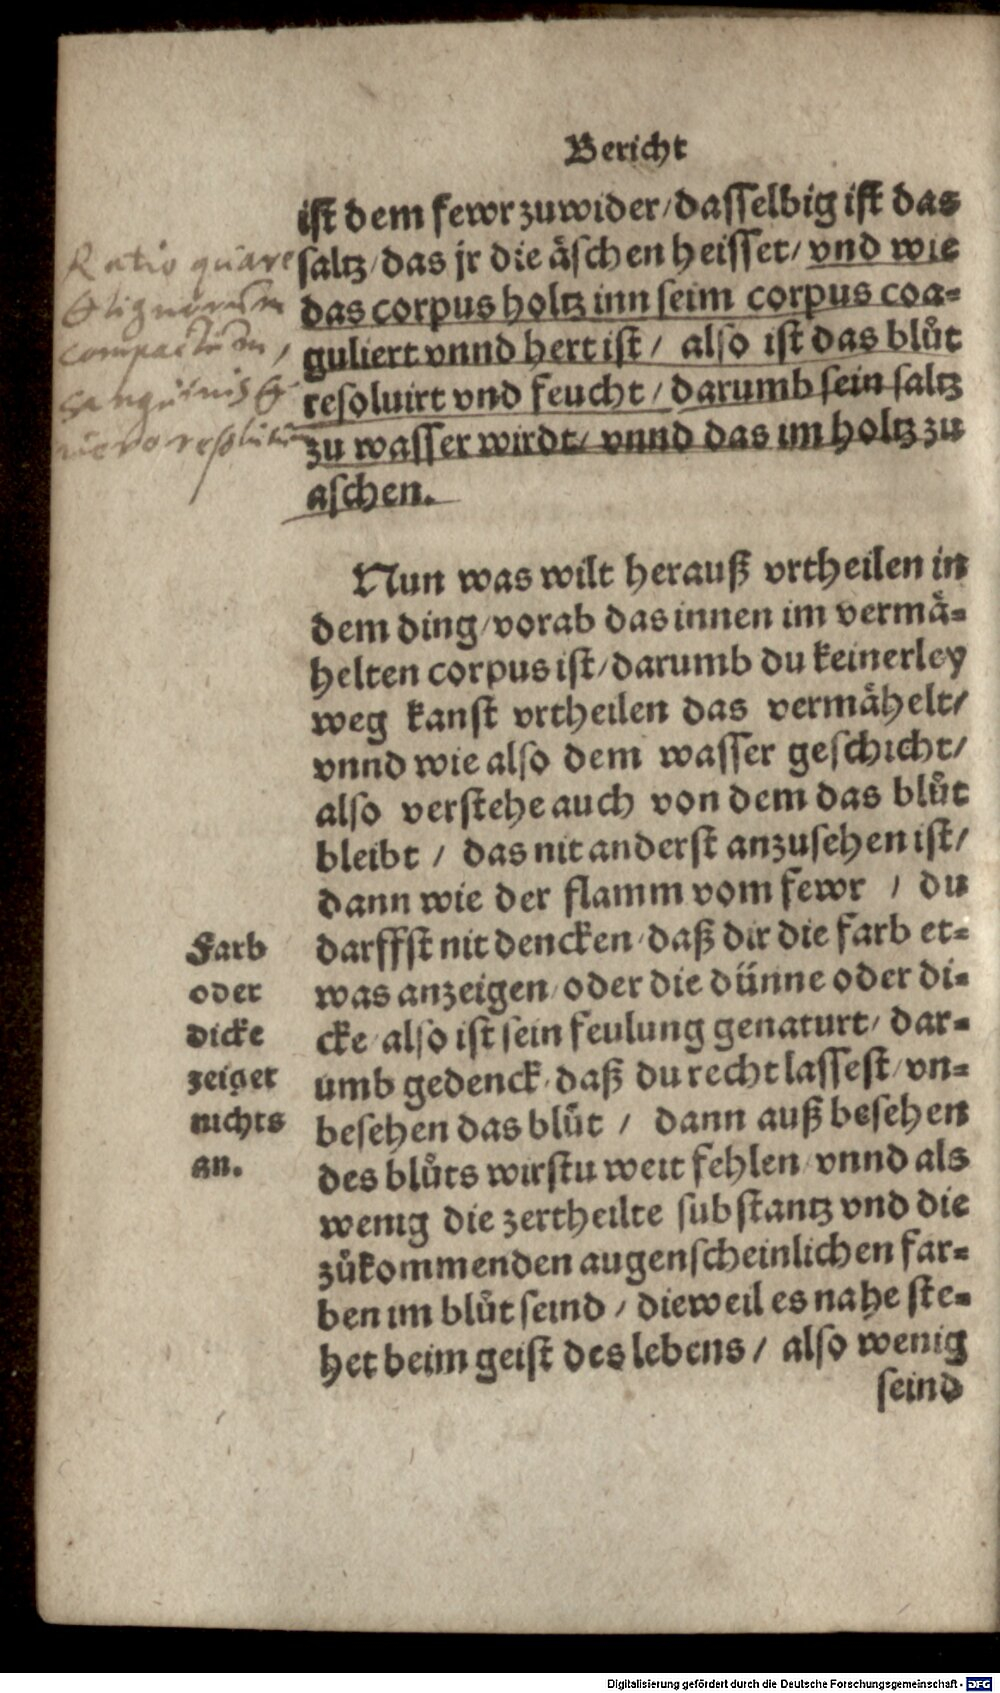 Bericht
ist dem fewr zuwider/dasselbig ist das
saltz/das jr die äschen heisset/ vnd wie
das corpus holtz inn seim corpus coa-
guliert vnnd hert ist/ also ist das blůt
resoluirt vnd feucht/darumb sein saltz
zu wasser wirdt/ vnnd das im holtz zu
aschen.
Ratio quare
lignorum
compactum,
sanguinis &
vero resolutu
Nun was wilt herauß vrtheilen in
dem ding/vorab das innen im vermä-
helten corpus ist/darumb du keinerley
weg kanst vrtheilen das vermähelt/
vnnd wie also dem wasser geschicht/
also verstehe auch von dem das blůt
bleibt / das nit anderst anzusehen ist/
dann wie der flamm vom fewr / du
darffst nit dencken/daß dir die farb et-
was anzeigen/oder die dünne oder di-
cke/also ist sein feulung genaturt/ dar-
umb gedenck/daß du recht lassest/vn-
besehen das blůt / dann auß besehen
des blůts wirstu weit fehlen/vnnd als
wenig die zertheilte substantz vnd die
zůkommenden augenscheinlichen far-
ben im blůt seind / dieweil es nahe ste-
het beim geist des lebens/ also wenig
seind
Farb
oder
dicke
zeiget
nichts
an.
Digitalisierung gefördert durch die Deutsche Forschungsgemeinschaft - DFG